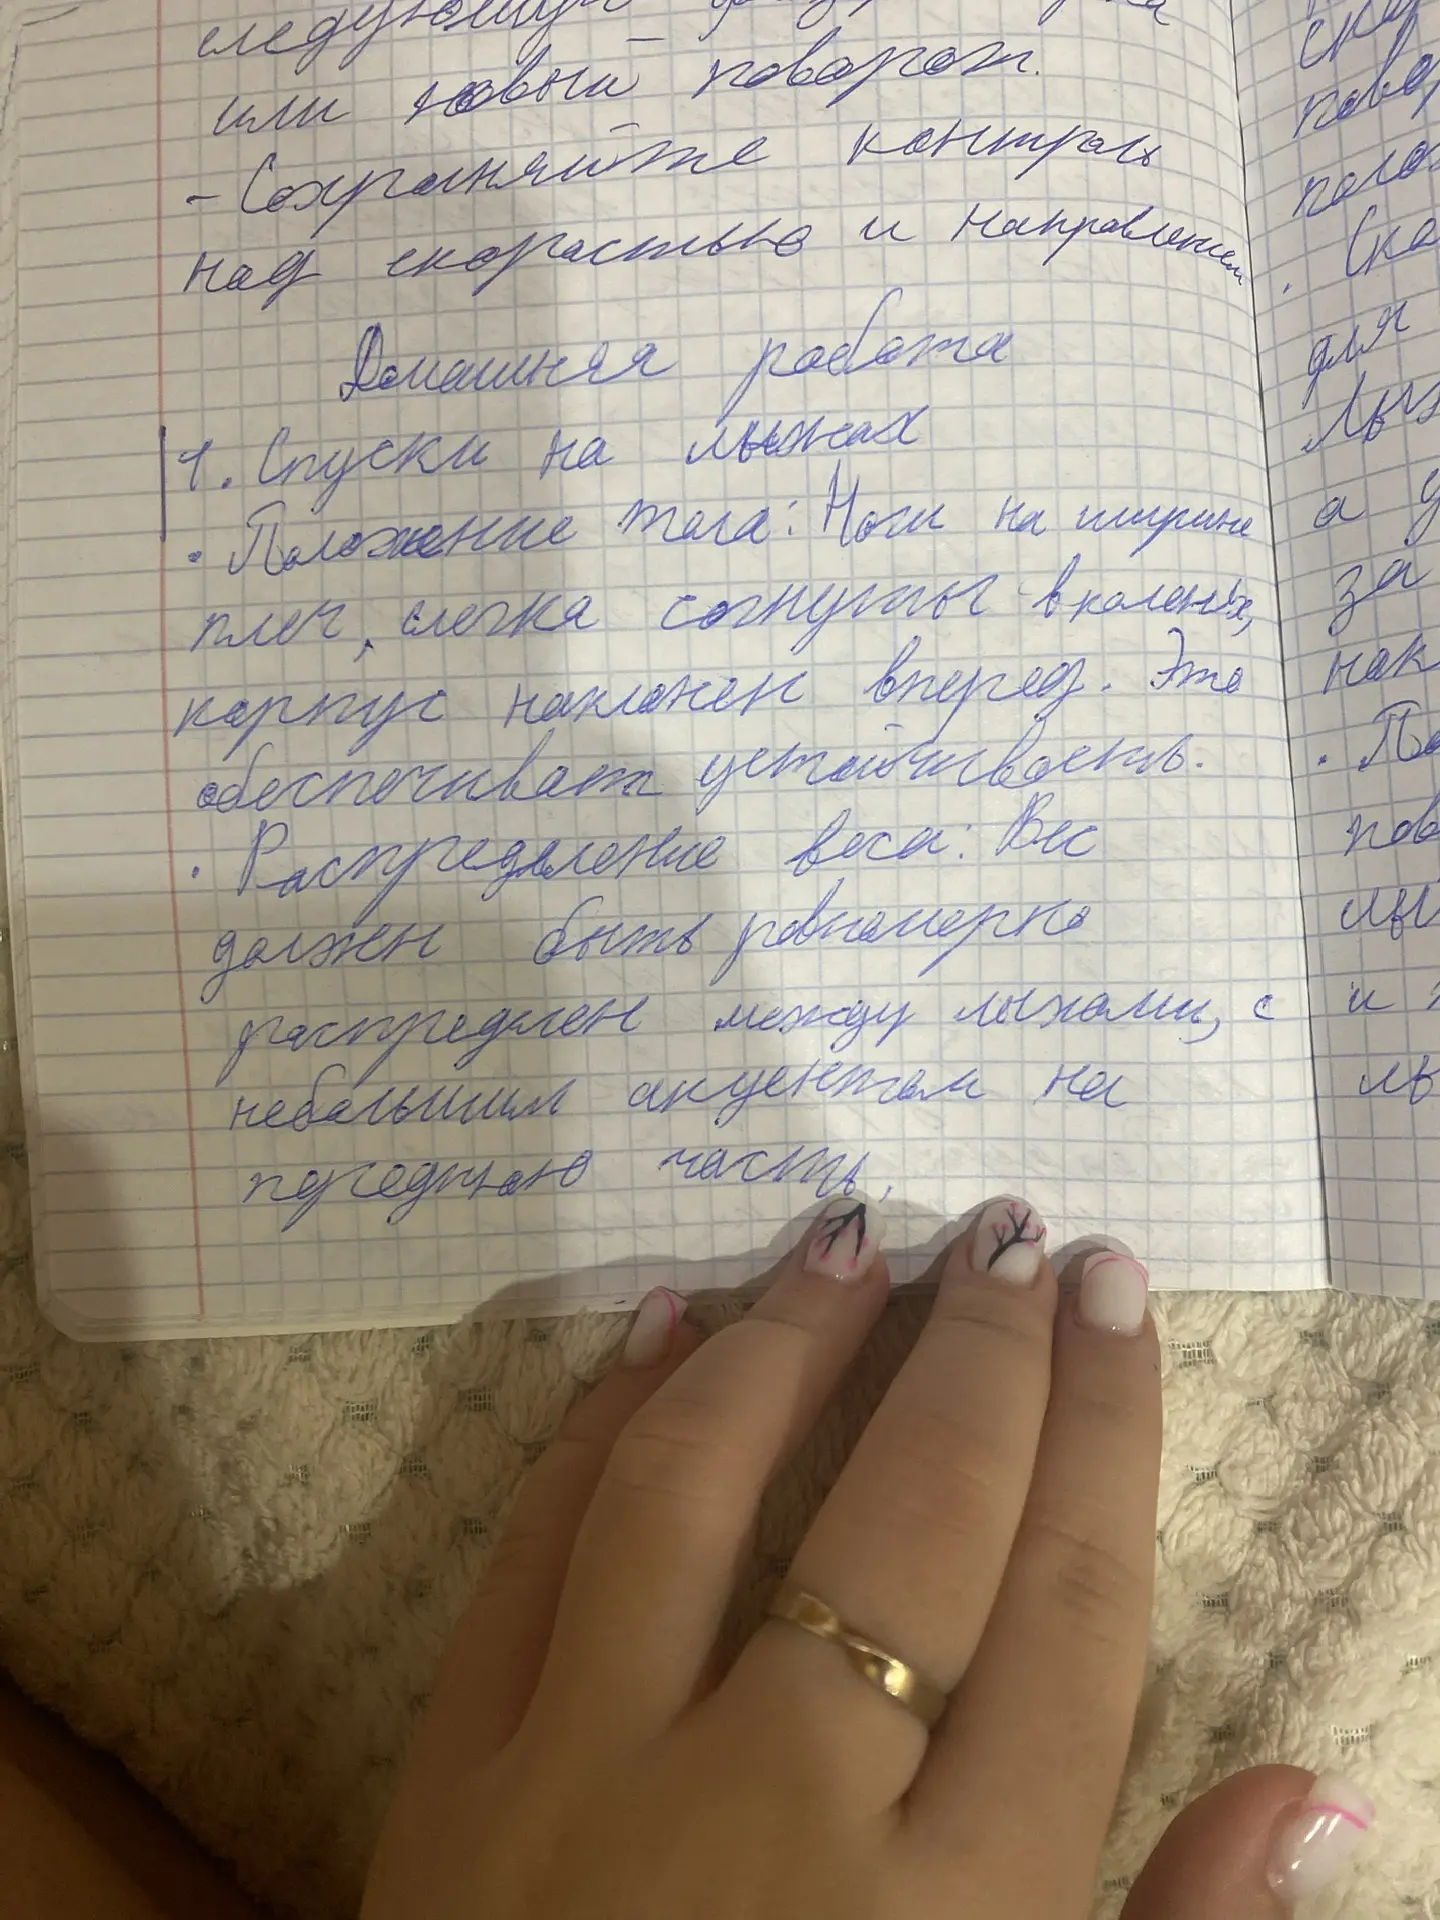 следующую
или новый поворот.
- Сохраняйте контроль
над скоростью и направлением
Домашняя работа
1. Спуски на лыжах
· Положение тела: Ноги на ширине
плеч, слегка согнуты в коленях,
корпус наклонен вперед. Это
обеспечивает устойчивость.
· Распределение веса: Вес
должен быть равномерно
распределен между лыжами, с
небольшим акцентом на
переднюю часть.
для
а
за
нак
и